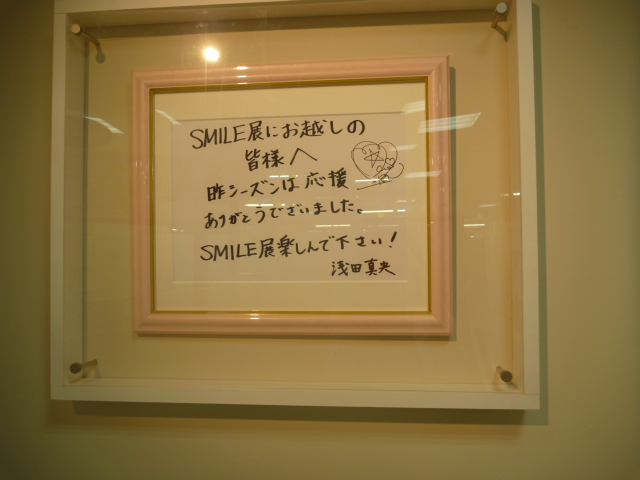 SMILE展にお越しの
皆様へ
昨シーズンは応援
ありがとうございました。
SMILE展楽しんで下さい!
浅田真央